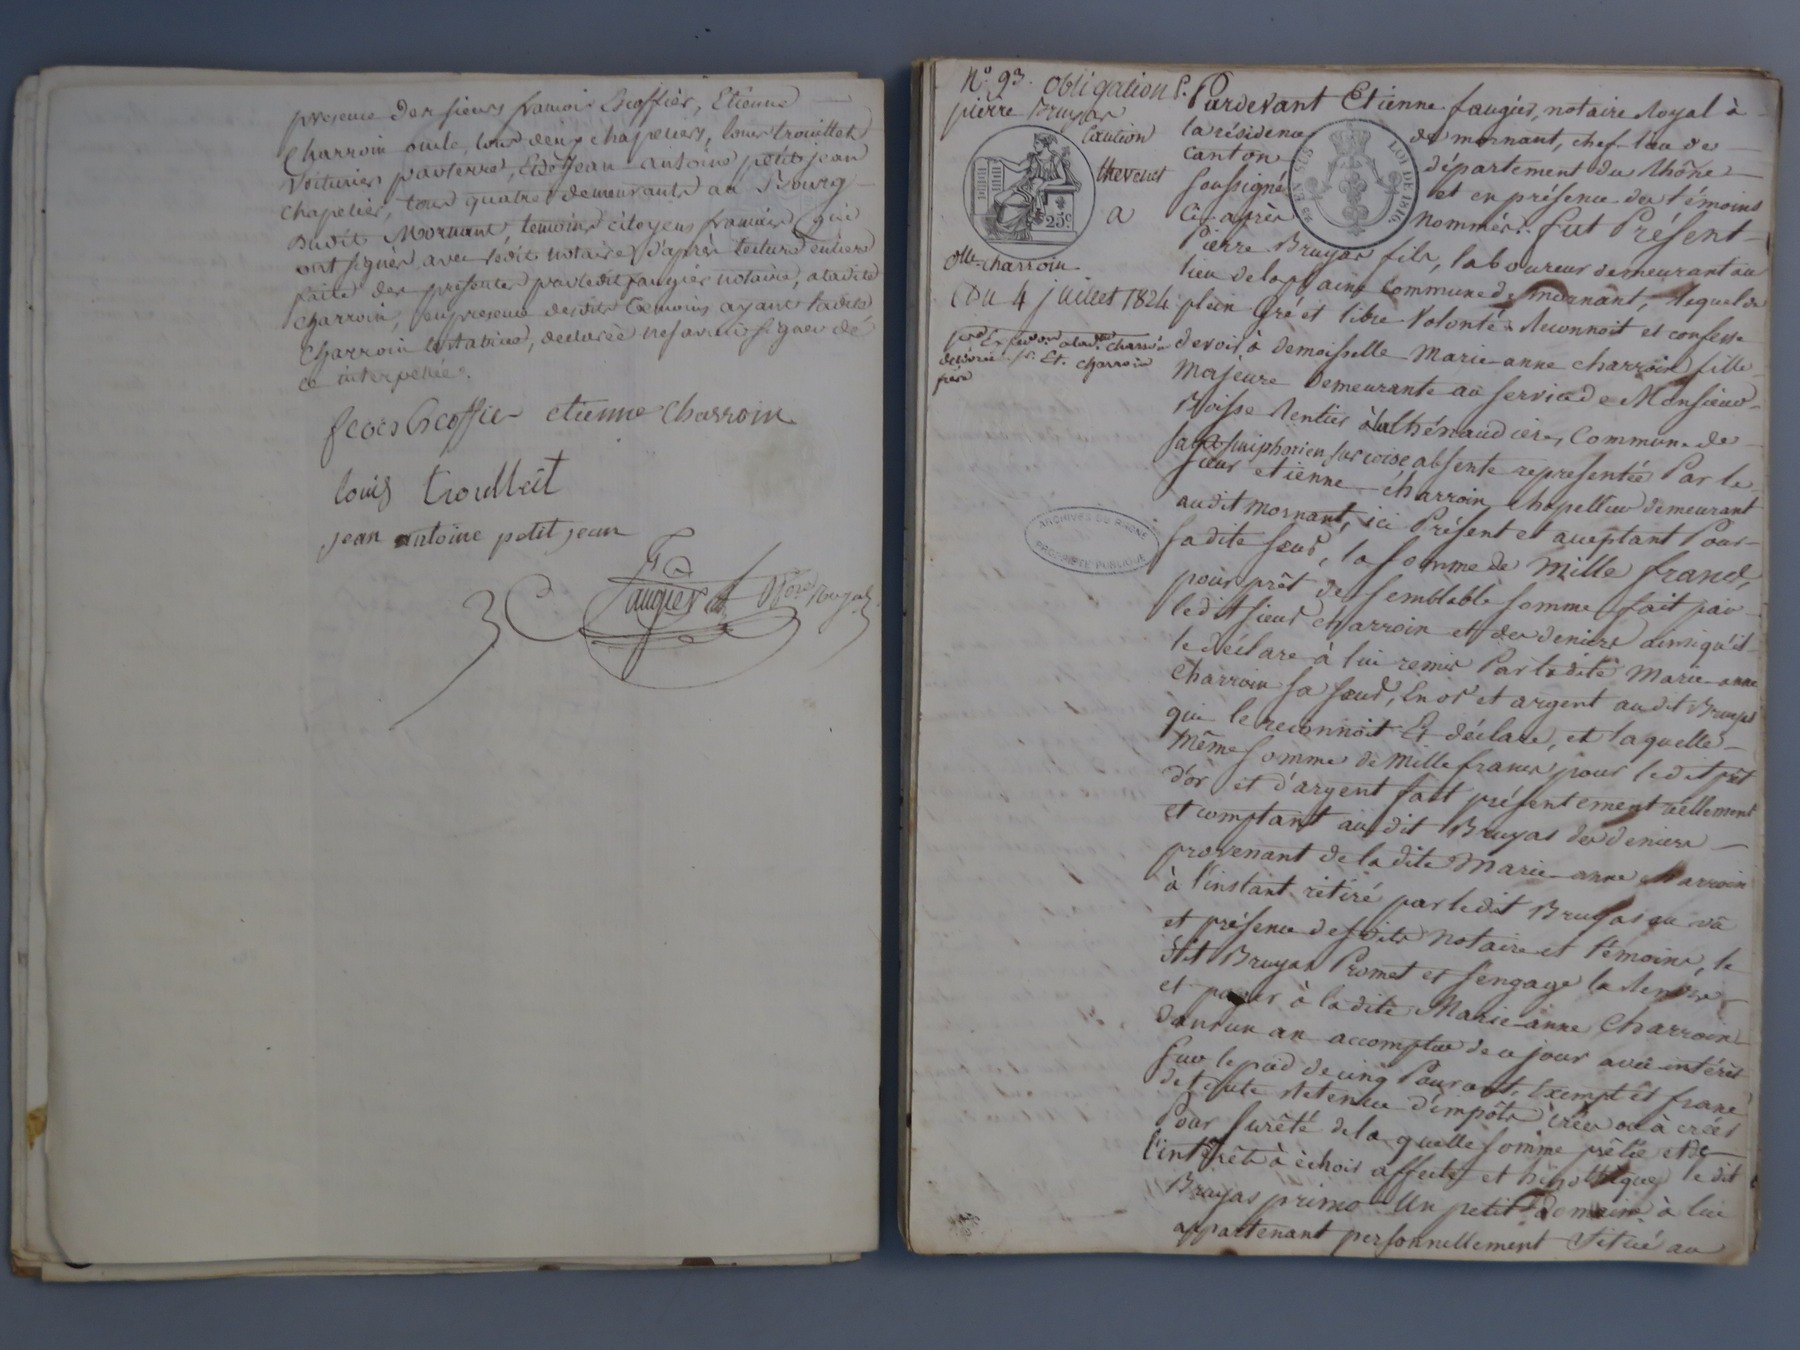 presence des sieurs francois Escoffier, Etienne
Charroin oncle, tous deux chapeliers, louis trouillet
Voiturier par terre, et de jean antoine petit jean
Chapelier, tous quatre demeurants au Bourg
dudit Mornant temoins citoyens francais qui
ont signés avec ledit notaire d'après lecture entiere
faite des presentes par ledit faugier notaire, a ladite
Charroin, en presence desdits temoins ayant ladite
Charroin testatrice, declarée ne savoir signer de
ce interpellée.
fcois Escoffier etienne Charroin
louis trouilleit
jean antoine petit jean
Faugier Nore Royal
N.° 93. obligation P.
pierre Bruyas
Caution
thevenet
a
25.c
dlle. charroin
Du 4 juillet 1824
delivrée Et. charroin
frère
Pardevant Etienne faugier, notaire Royal à
la résidence de mornant, chef-lieu de
canton département du Rhône
soussigné et en présence des témoins
Ci-après nommés: fut Présent
25 EN SUS LOI DE 1816.
Pierre Bruyas fils, laboureur demeurant au
lieu de la plaine Commune de mornant, lequel de
plein Gré et libre Volonté Reconnoit et confesse
devoir à demoiselle Marie-anne charroin fille
Majeure demeurante au service de Monsieur
Boisse Rentier à lathénaudière, Commune de
saint simphorien sur coise absente representée Par le
sieur etienne charroin Chapellier demeurant
audit mornant, ici Présent et acceptant Pour
sadite sœur, la somme de Mille francs,
pour prêt de semblable somme fait par
ledit sieur charroin et des deniers ainsi qu'il
le déclare à lui remis Par ladite Marie-anne
Charroin sa sœur, En or et argent audit Bruyas
qui le reconnoit Et déclare, et laquelle
Même somme de Mille francs pour ledit prêt
d'or et d'argent fait présentement réellement
et comptant audit Bruyas des deniers
provenant de ladite Marie-anne charroin
à l'instant rétiré par ledit Bruyas au vû
et présence desdits Notaire et témoins, le
dit Bruyas Promet et s'engage la Rendre
et payer à ladite Marie-anne Charroin
dans un an accompter de ce jour avec intérêt
sur le pied de cinq Pour cent, Exempt et franc
de toute Retenue d'impôts crées ou à créer
Pour sureté de la quelle somme prêtée et de
l'intérêt à échoir affecte et hipothèque, le dit
Bruyas primo Un petit domaine à lui
appartenant personnellement situé au
ARCHIVES DU RHÔNE
PROPRIÉTÉ PUBLIQUE